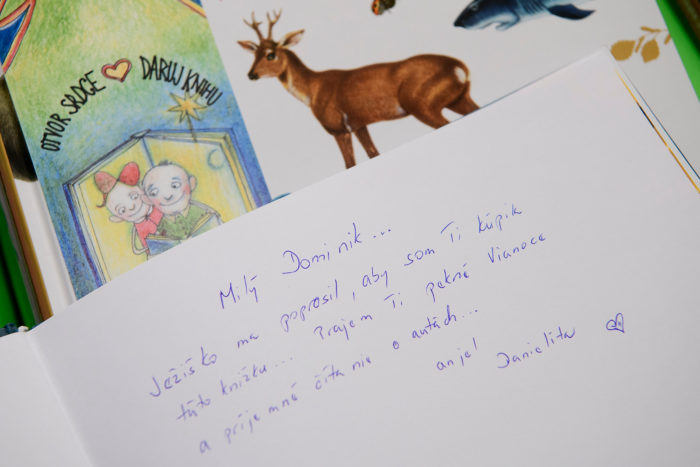 OTVOR SRDCE DARUJ KNIHU
Milý Dominik...
Ježiško ma poprosil, aby som Ti kúpil
túto knižku... Prajem Ti pekné Vianoce
a príjemné čítanie o autách...
anjel
Danielita